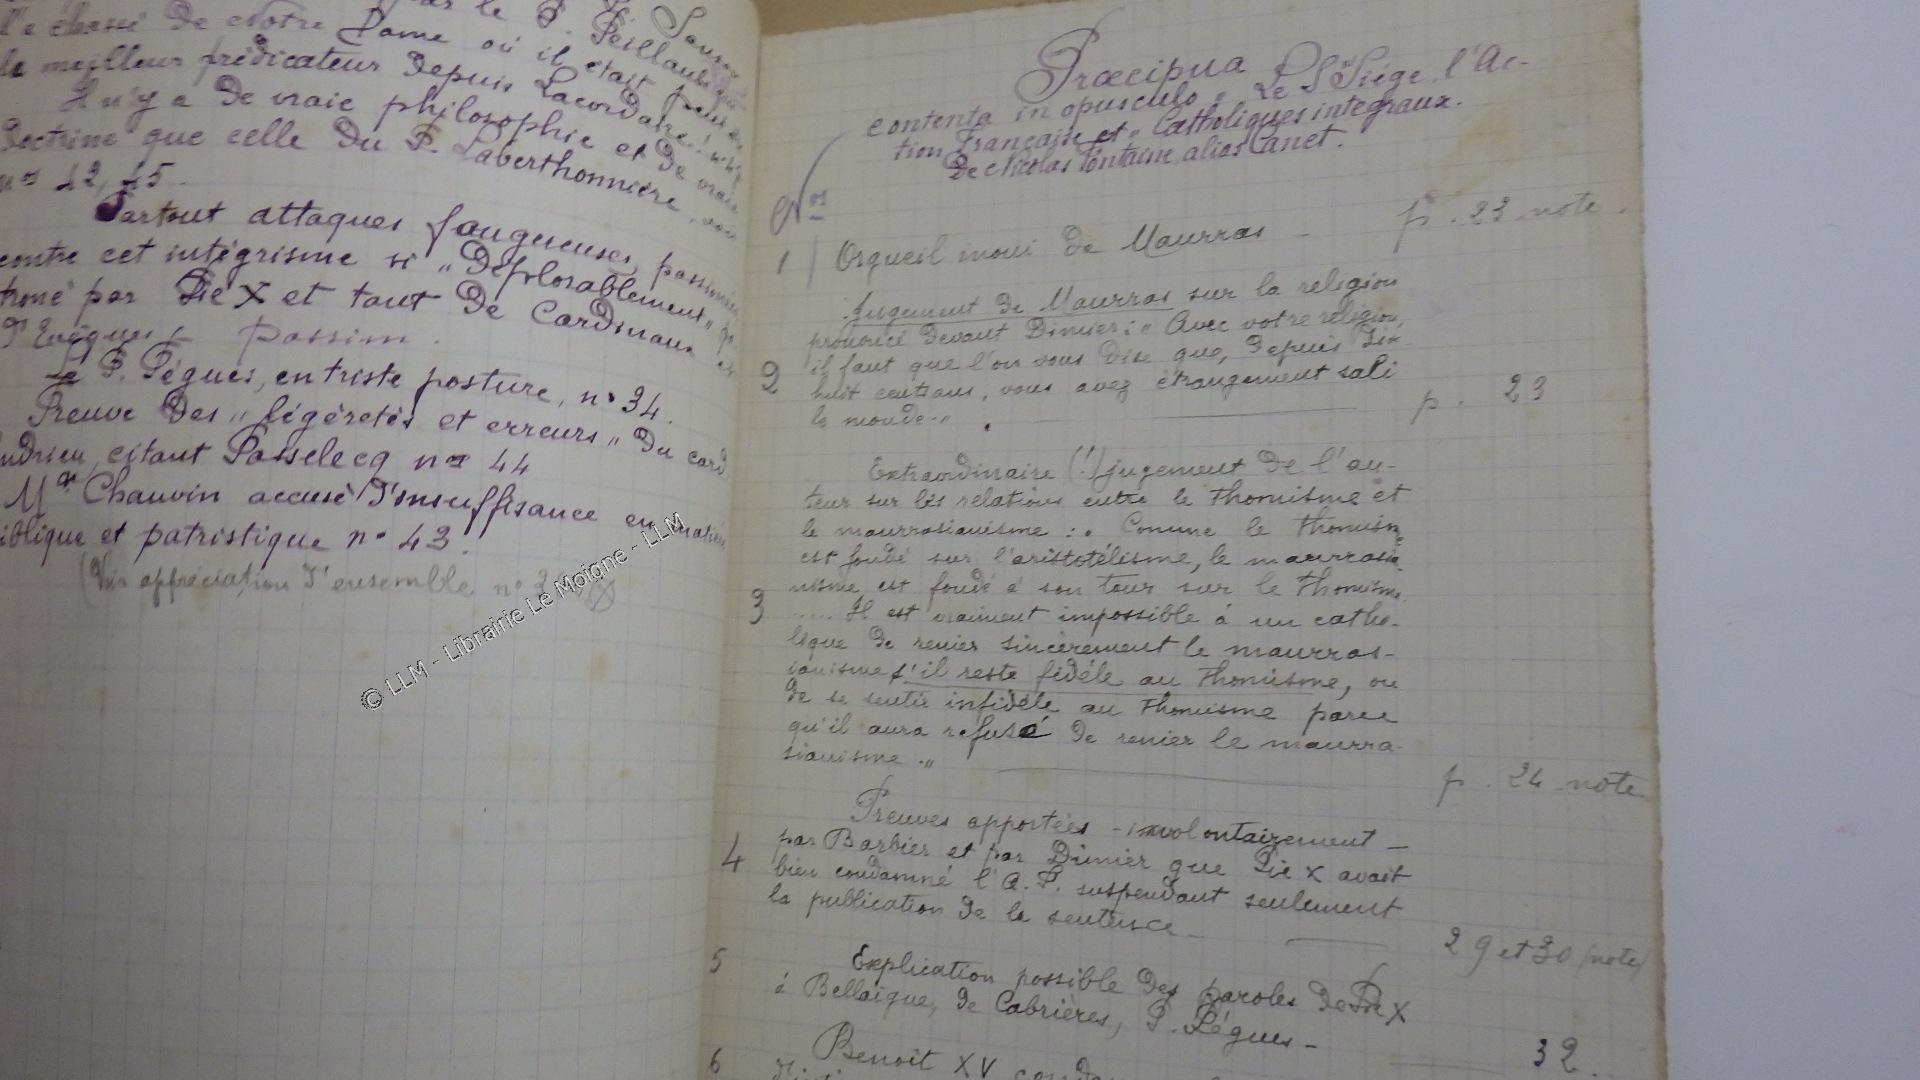 par le P. Sanson
l'a chassé de Notre Dame où il était
le meilleur prédicateur depuis Lacordaire!
Il n'y a de vraie philosophie et de vraie
doctrine que celle du P. Laberthonnière,
nos 42, 45.
Partout attaques fougueuses,
contre cet intégrisme si „déplorablement"
par Pie X et tant de Cardinaux et
d'Evêques passim.
Le P. Pégues, en triste posture, n° 34.
Preuve des „légèretés et erreurs" du card
Andrieu, citant Passelecq nos 44
Mgr Chauvin accusé d'insuffisance en matière
biblique et patristique n° 43.
(Voir appréciation d'ensemble n°
© LLM - Librairie Le Moigne - LLM
Præcipua
contenta in opusculo „Le St Siège, l'Ac-
tion Française et „Catholiques intégraux.
de Nicolas Fontaine, alias Canet.
Nos
1 Orgueil inouï de Maurras – p. 23 note.
Jugement de Maurras sur la religion
prononcé devant Dimier: „Avec votre religion,
il faut que l'on vous dise que, depuis dix-
2 huit cents ans, vous avez étrangement sali
le monde." p. 23
Extraordinaire (!) jugement de l'au-
teur sur les relations entre le Thomisme et
le maurrasianisme: „Comme le thomisme
est fondé sur l'aristotélisme, le maurrasia-
nisme est fondé à son tour sur le Thomisme
3 ..... Il est vraiment impossible à un catho-
lique de renier sincèrement le maurras-
ianisme s'il reste fidèle au Thomisme, ou
de se sentir infidèle au Thomisme parce
qu'il aura refusé de renier le maurra-
sianisme." p. 24 note
Preuves apportées – involontairement –
4 par Barbier et par Dimier que Pie X avait
bien condamné l'A.F. suspendant seulement
la publication de la sentence – 29 et 30 (note)
5 Explication possible des paroles de Pie X
à Bellaigue, de Cabrières, P. Pégues – 32.
6 Benoit XV